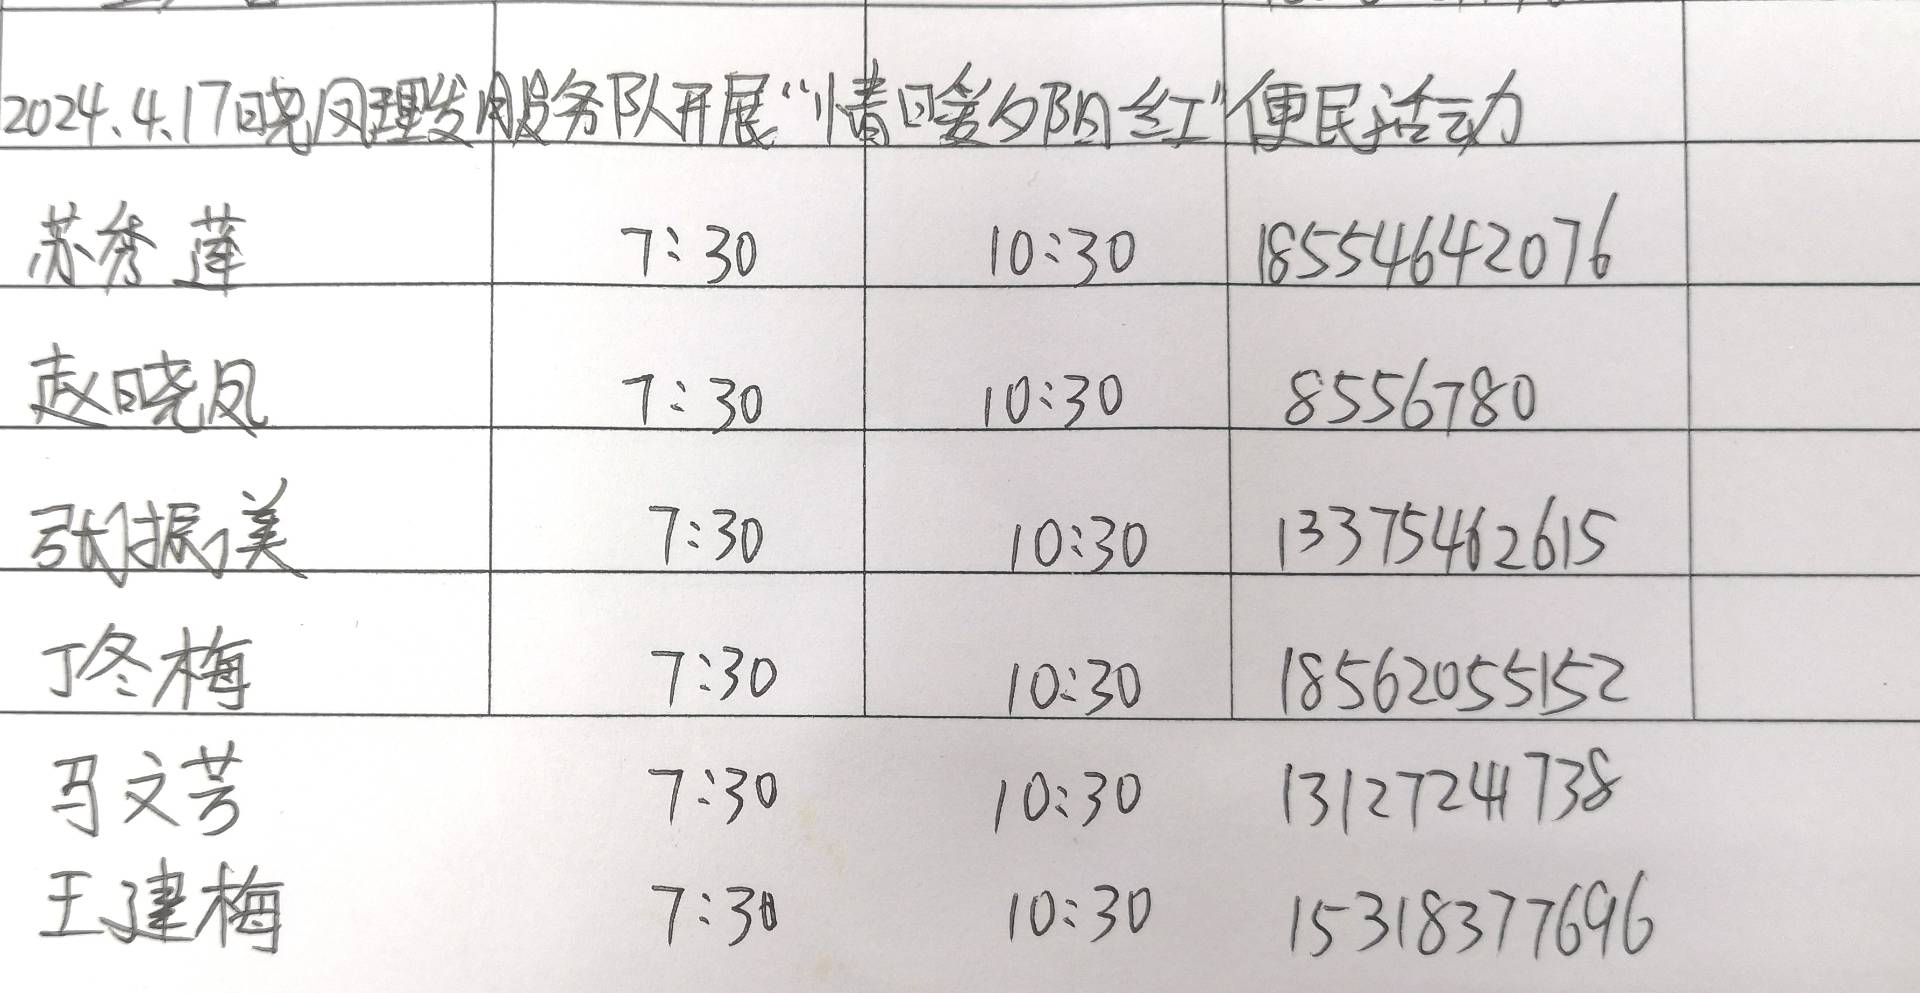 2024.4.17日晓风理发服务队开展“情暖夕阳红”便民活动
苏秀莲 7:30 10:30 18554642076
赵晓凤 7:30 10:30 8556780
张振美 7:30 10:30 13375462615
丁冬梅 7:30 10:30 18562055152
马文芳 7:30 10:30 13127241738
王建梅 7:30 10:30 15318377696